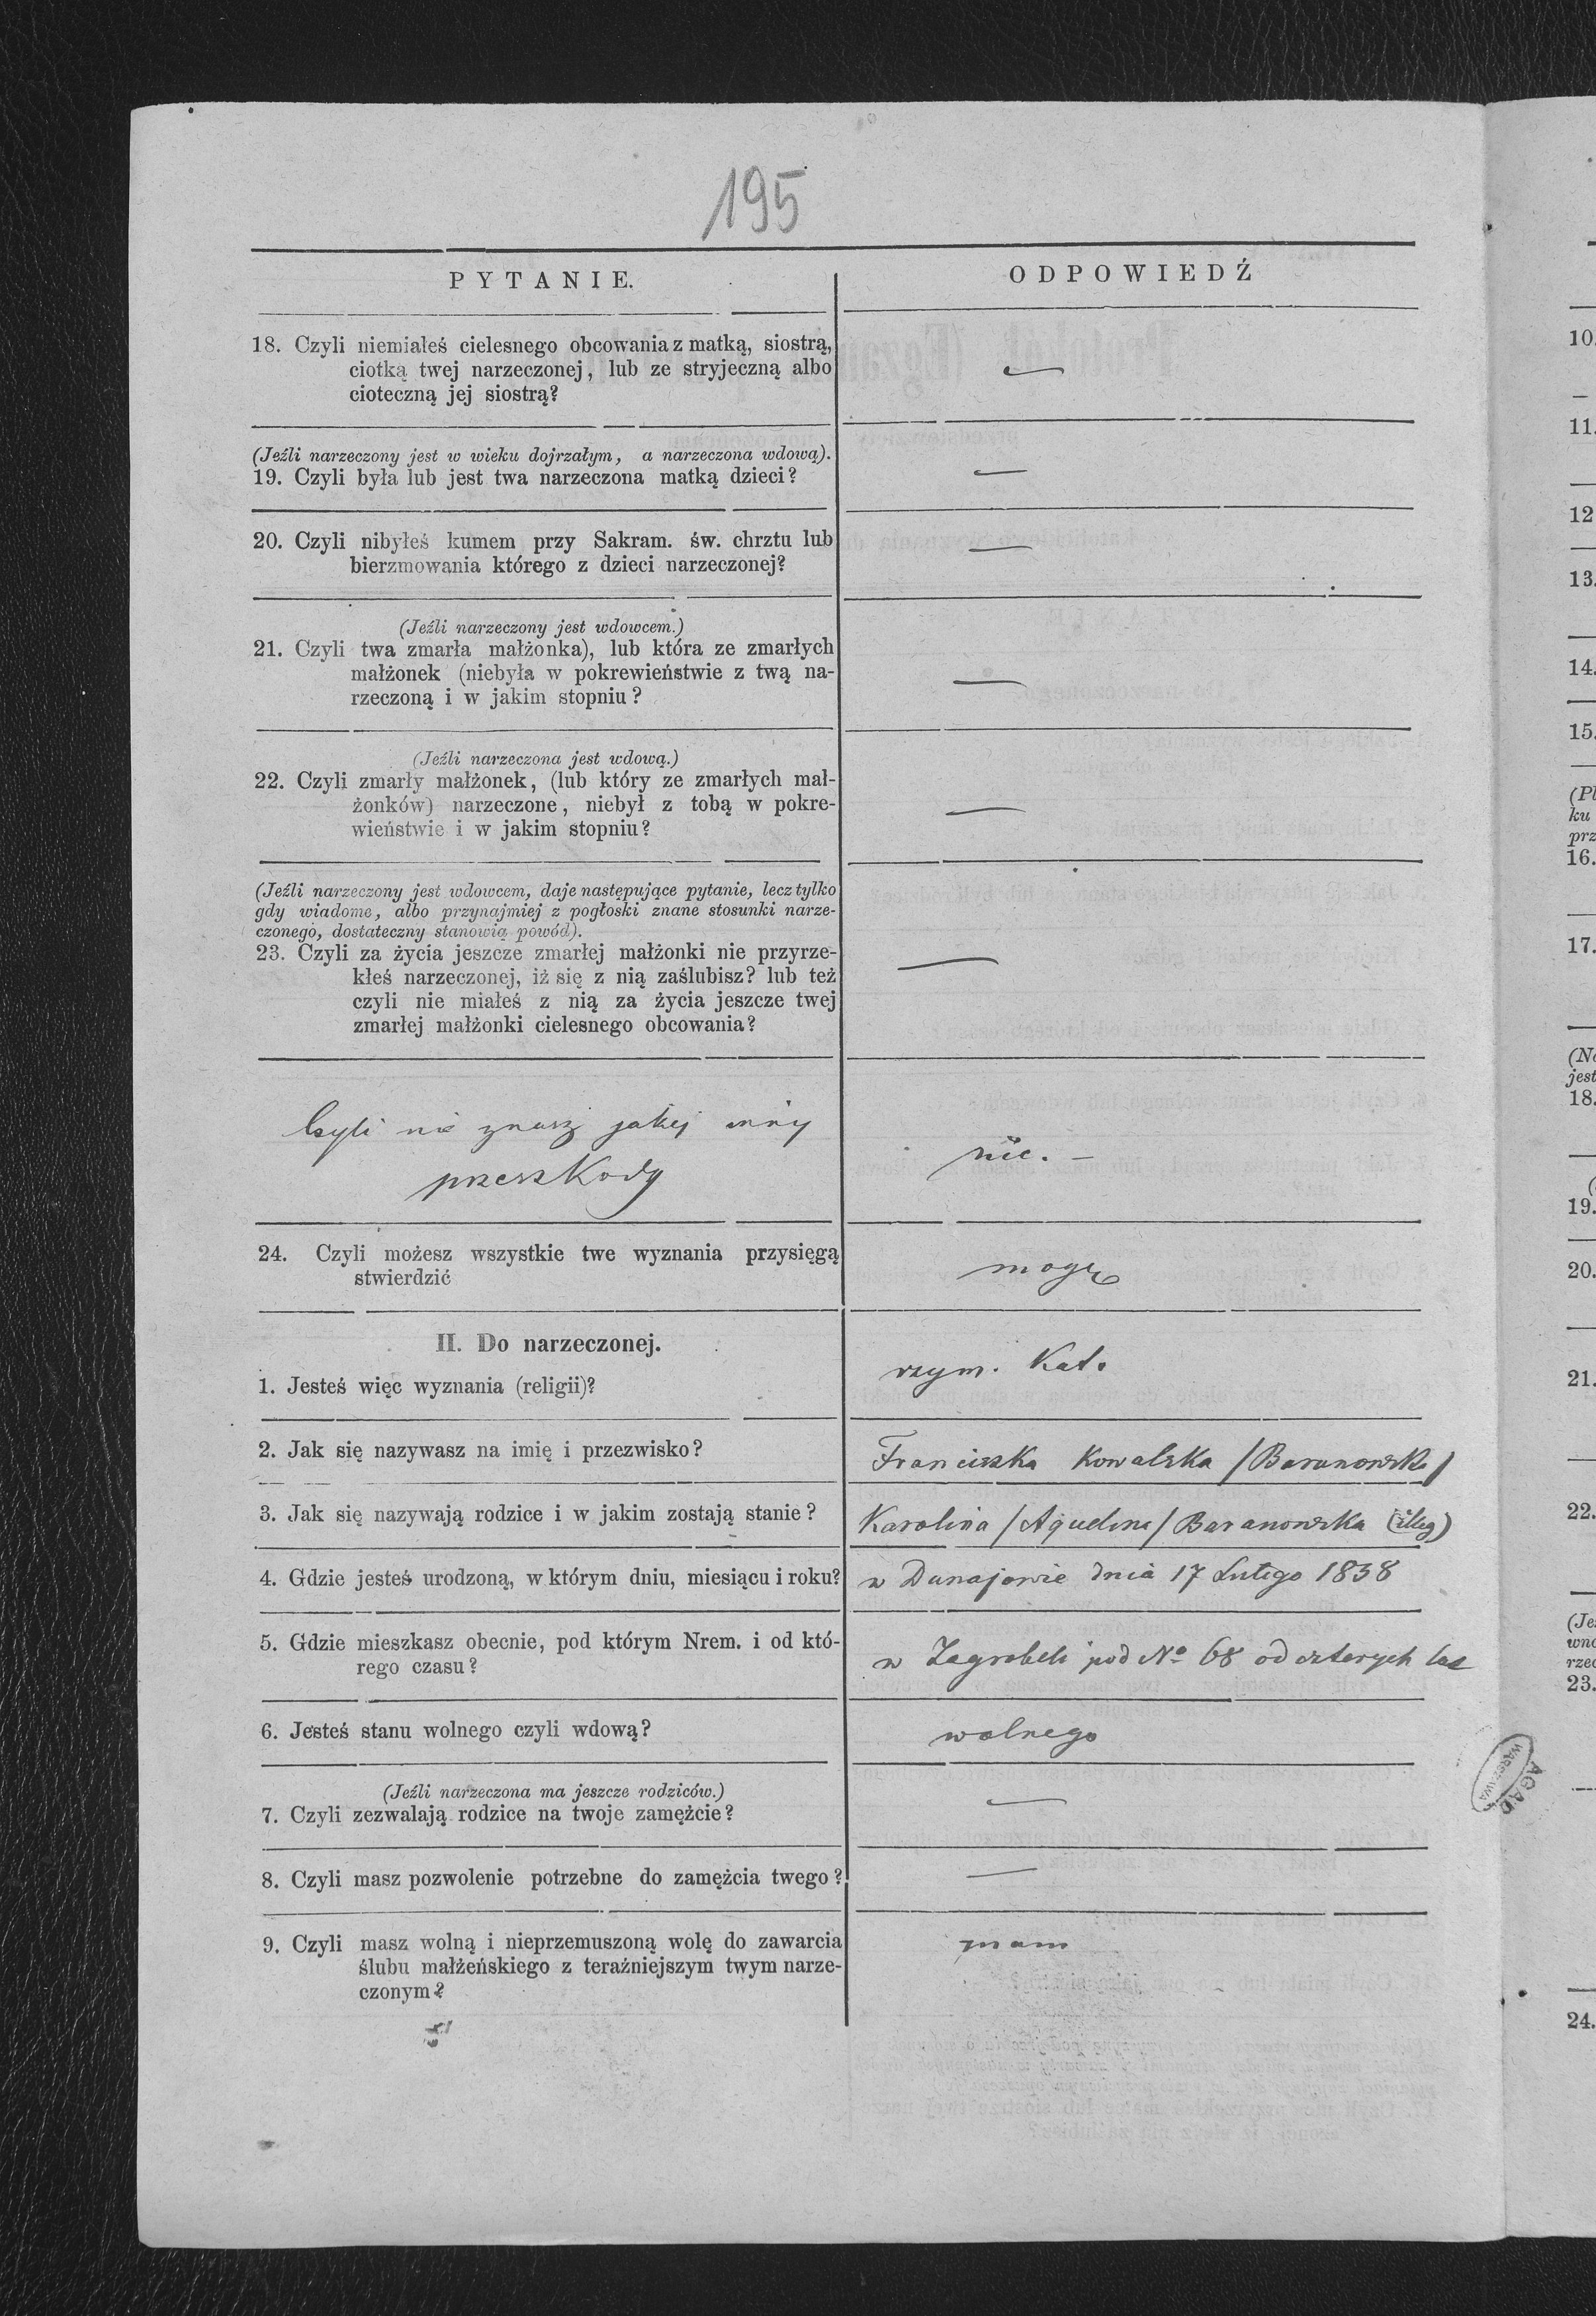 195
PYTANIE.
ODPOWIEDŹ
18. Czyli niemiałeś cielesnego obcowania z matką, siostrą,
ciotką twej narzeczonej, lub ze stryjeczną albo
cioteczną jej siostrą?
—
(Jeźli narzeczony jest w wieku dojrzałym, a narzeczona wdową).
19. Czyli była lub jest twa narzeczona matką dzieci?
—
20. Czyli nibyłeś kumem przy Sakram. św. chrztu lub
bierzmowania którego z dzieci narzeczonej?
—
(Jeźli narzeczony jest wdowcem.)
21. Czyli twa zmarła małżonka), lub która ze zmarłych
małżonek (niebyła w pokrewieństwie z twą na-
rzeczoną i w jakim stopniu?
—
(Jeźli narzeczona jest wdową.)
22. Czyli zmarły małżonek, (lub który ze zmarłych mał-
żonków) narzeczone, niebył z tobą w pokre-
wieństwie i w jakim stopniu?
—
(Jeźli narzeczony jest wdowcem, daje następujące pytanie, lecz tylko
gdy wiadome, albo przynajmiej z pogłoski znane stosunki narze-
czonego, dostateczny stanowią powód).
23. Czyli za życia jeszcze zmarłej małżonki nie przyrze-
kłeś narzeczonej, iż się z nią zaślubisz? lub też
czyli nie miałeś z nią za życia jeszcze twej
zmarłej małżonki cielesnego obcowania?
—
Czyli nie znasz jakiej innej
przeszkody
nie. –
24. Czyli możesz wszystkie twe wyznania przysięgą
stwierdzić
mogę
II. Do narzeczonej.
1. Jesteś więc wyznania (religii)?
rzym. Kat.
2. Jak się nazywasz na imię i przezwisko?
Franciszka Kowalska /Baranowska/
3. Jak się nazywają rodzice i w jakim zostają stanie?
Karolina /Aquelina/ Baranowska (illeg)
4. Gdzie jesteś urodzoną, w którym dniu, miesiącu i roku?
w Dunajowie dnia 17 Lutego 1838
5. Gdzie mieszkasz obecnie, pod którym Nrem. i od któ-
rego czasu?
w Zagrobeli pod No 68 od czterych lat
6. Jesteś stanu wolnego czyli wdową?
wolnego
(Jeźli narzeczona ma jeszcze rodziców.)
7. Czyli zezwalają rodzice na twoje zamężcie?
—
8. Czyli masz pozwolenie potrzebne do zamężcia twego?
—
9. Czyli masz wolną i nieprzemuszoną wolę do zawarcia
ślubu małżeńskiego z teraźniejszym twym narze-
czonym?
mam
AGAD
WARSZAWA
10.
11.
12
13.
14.
15.
(Pl
ku
prz
16.
17.
(No
jest
18.
(
19.
20.
21.
22.
(Jeź
wno
rzec
23.
24.